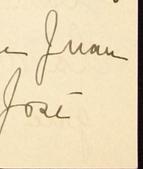 Juan
José